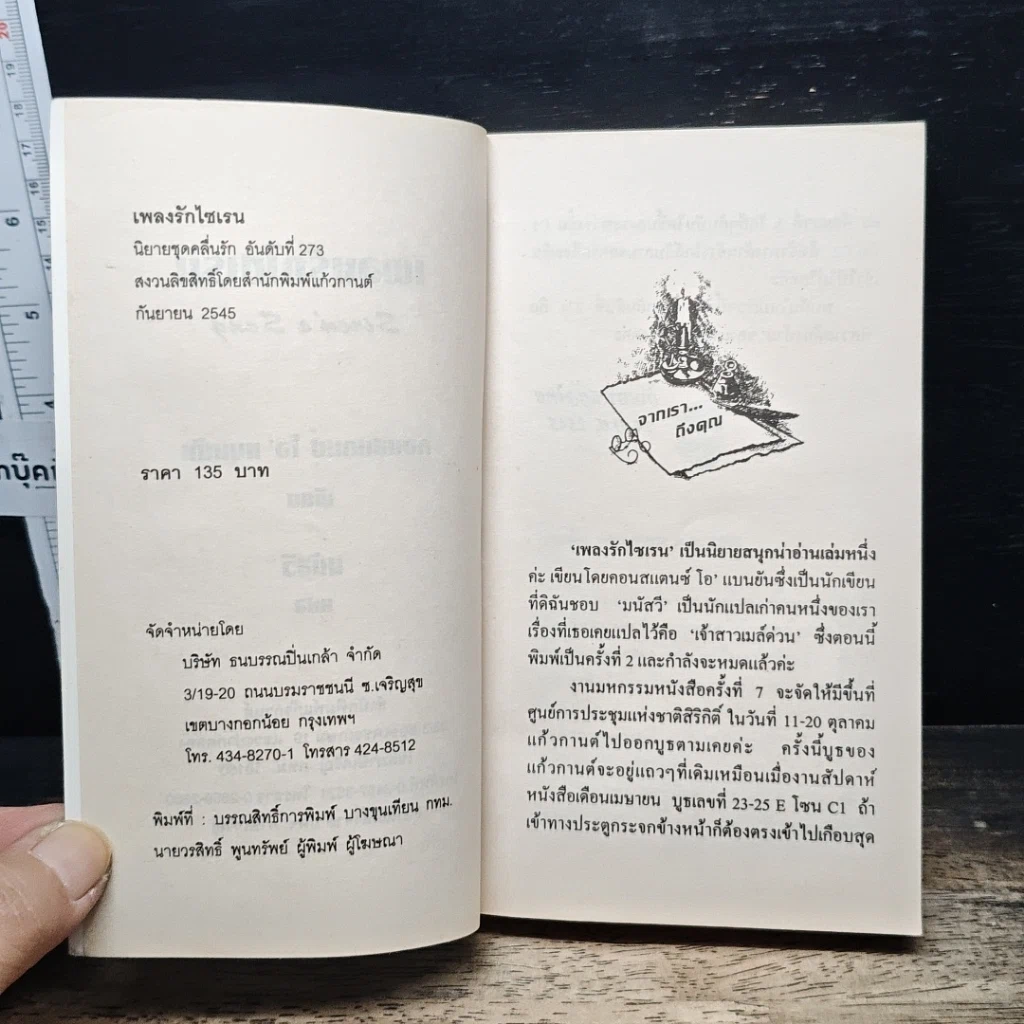 เพลงรักไซเรน
นิยายชุดคลื่นรัก อันดับที่ 273
สงวนลิขสิทธิ์โดยสำนักพิมพ์แก้วกานต์
กันยายน 2545
ราคา 135 บาท
จัดจำหน่ายโดย
บริษัท ธนบรรณปิ่นเกล้า จำกัด
3/19-20 ถนนบรมราชชนนี ซ.เจริญสุข
เขตบางกอกน้อย กรุงเทพฯ
โทร. 434-8270-1 โทรสาร 424-8512
พิมพ์ที่ : บรรณสิทธิ์การพิมพ์ บางขุนเทียน กทม.
นายวรสิทธิ์ พูนทรัพย์ ผู้พิมพ์ ผู้โฆษณา
จากเรา...
ถึงคุณ
'เพลงรักไซเรน' เป็นนิยายสนุกน่าอ่านเล่มหนึ่ง
ค่ะ เขียนโดยคอนสแตนซ์ โอ' แบนยันซึ่งเป็นนักเขียน
ที่ดิฉันชอบ 'มนัสวี' เป็นนักแปลเก่าคนหนึ่งของเรา
เรื่องที่เธอเคยแปลไว้คือ 'เจ้าสาวเมล์ด่วน' ซึ่งตอนนี้
พิมพ์เป็นครั้งที่ 2 และกำลังจะหมดแล้วค่ะ
งานมหกรรมหนังสือครั้งที่ 7 จะจัดให้มีขึ้นที่
ศูนย์การประชุมแห่งชาติสิริกิติ์ ในวันที่ 11-20 ตุลาคม
แก้วกานต์ไปออกบูธตามเคยค่ะ ครั้งนี้บูธของ
แก้วกานต์จะอยู่แถวๆที่เดิมเหมือนเมื่องานสัปดาห์
หนังสือเดือนเมษายน บูธเลขที่ 23-25 E โซน C1 ถ้า
เข้าทางประตูกระจกข้างหน้าก็ต้องตรงเข้าไปเกือบสุด
20
19
18
17
16
15
6
5
4